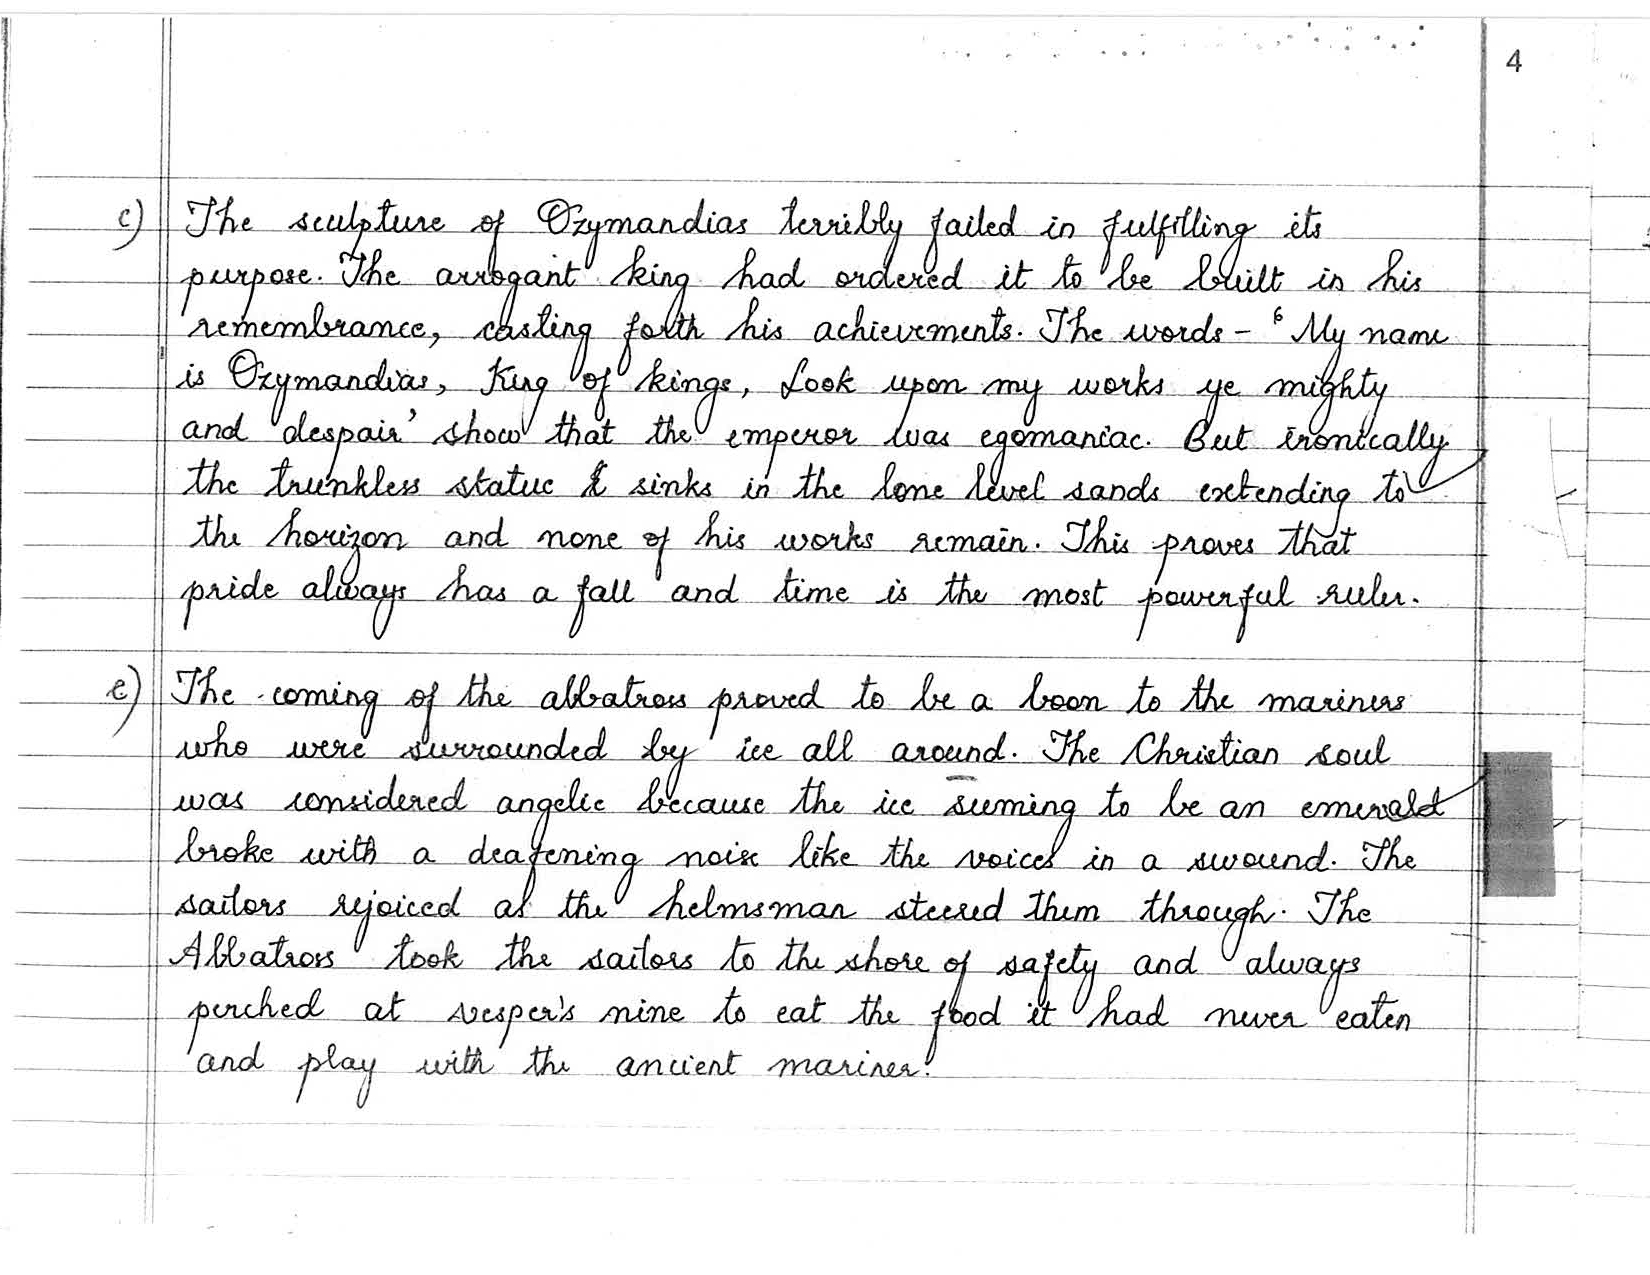 4
c) The sculpture of Ozymandias terribly failed in fulfilling its
purpose. The arrogant king had ordered it to be built in his
remembrance, casting forth his achievements. The words - ‘My name
is Ozymandias, King of kings, Look upon my works ye mighty
and despair’ show that the emperor was egomaniac. But ironically
the trunkless statue sinks in the lone level sands extending to
the horizon and none of his works remain. This proves that
pride always has a fall and time is the most powerful ruler.
e) The coming of the albatross proved to be a boon to the mariners
who were surrounded by ice all around. The Christian soul
was considered angelic because the ice seeming to be an emerald
broke with a deafening noise like the voices in a swound. The
sailors rejoiced as the helmsman steered them through. The
Albatross took the sailors to the shore of safety and always
perched at vesper's nine to eat the food it had never eaten
and play with the ancient mariner.